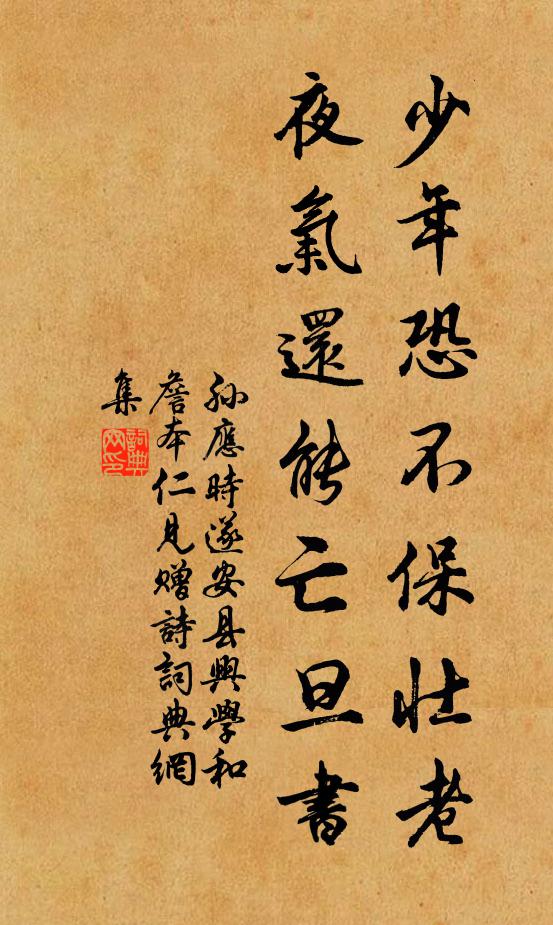 少年恐不保壮老
夜氣還能亡旦書
孙應時遂安县興學和
詹本仁見赠詩詞典網
集
詩典
网印